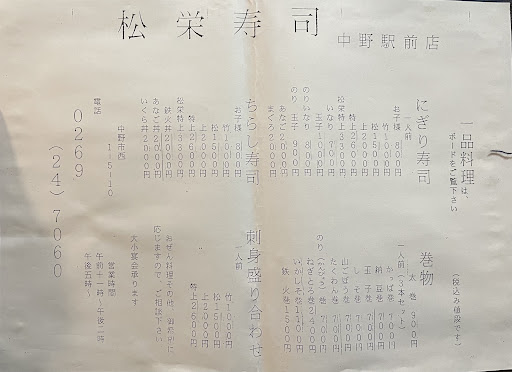 松栄寿司
中野駅前店
一品料理は、
ボードをご覧下さい
にぎり寿司
一人前
お子様 800円
竹1000円
松1500円
上2000円
特上2600円
松栄特上3300円
いなり 700円
玉子1000円
のりいなり 800円
のり玉子 900円
あなご2000円
まぐろ2000円
ちらし寿司
お子様 800円
竹1000円
松1500円
上2000円
特上2600円
松栄特上3300円
鉄火丼2000円
あなご丼2000円
いくら丼2000円
中野市西1-5-10
電話
0269
(24)7060
(税込み値段です)
巻物
太巻 900円
一人前(3本セット)
かっぱ巻 700円
納豆巻 700円
玉子巻 700円
しそ巻 700円
山ごぼう巻 700円
たくわん巻 700円
のり(かんぴょう)巻 700円
ねぎとろ巻2400円
いかしそ巻1100円
鉄火巻1500円
刺身盛り合わせ
一人前
竹1000円
松1500円
上2000円
特上2600円
おぜん料理その他、御予算に
応じますので、ご相談下さい
大小宴会承ります
営業時間
午前十一時〜午後二時
午後五時〜